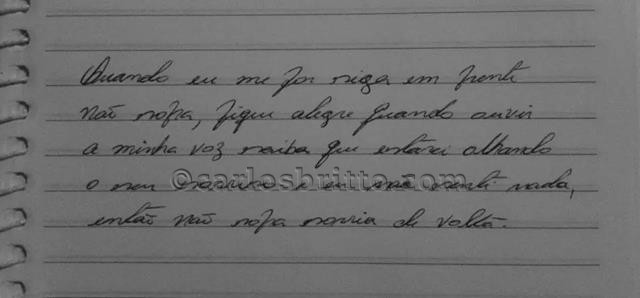 Quando eu me for siga em frente
não sofra, fique alegre quando ouvir
a minha voz saiba que estarei olhando
o seu sorriso e eu não senti nada,
então não sofra sorria de volta.
©carlosbritto.com